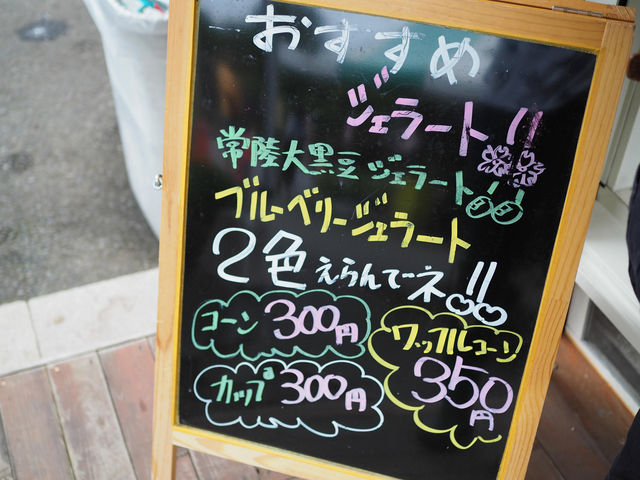 おすすめ
ジェラート!!
常陸大黒豆ジェラート!!
ブルーベリージェラート
2色えらんでーネ!!
コーン300円
ワッフルコーン350円
カップ300円